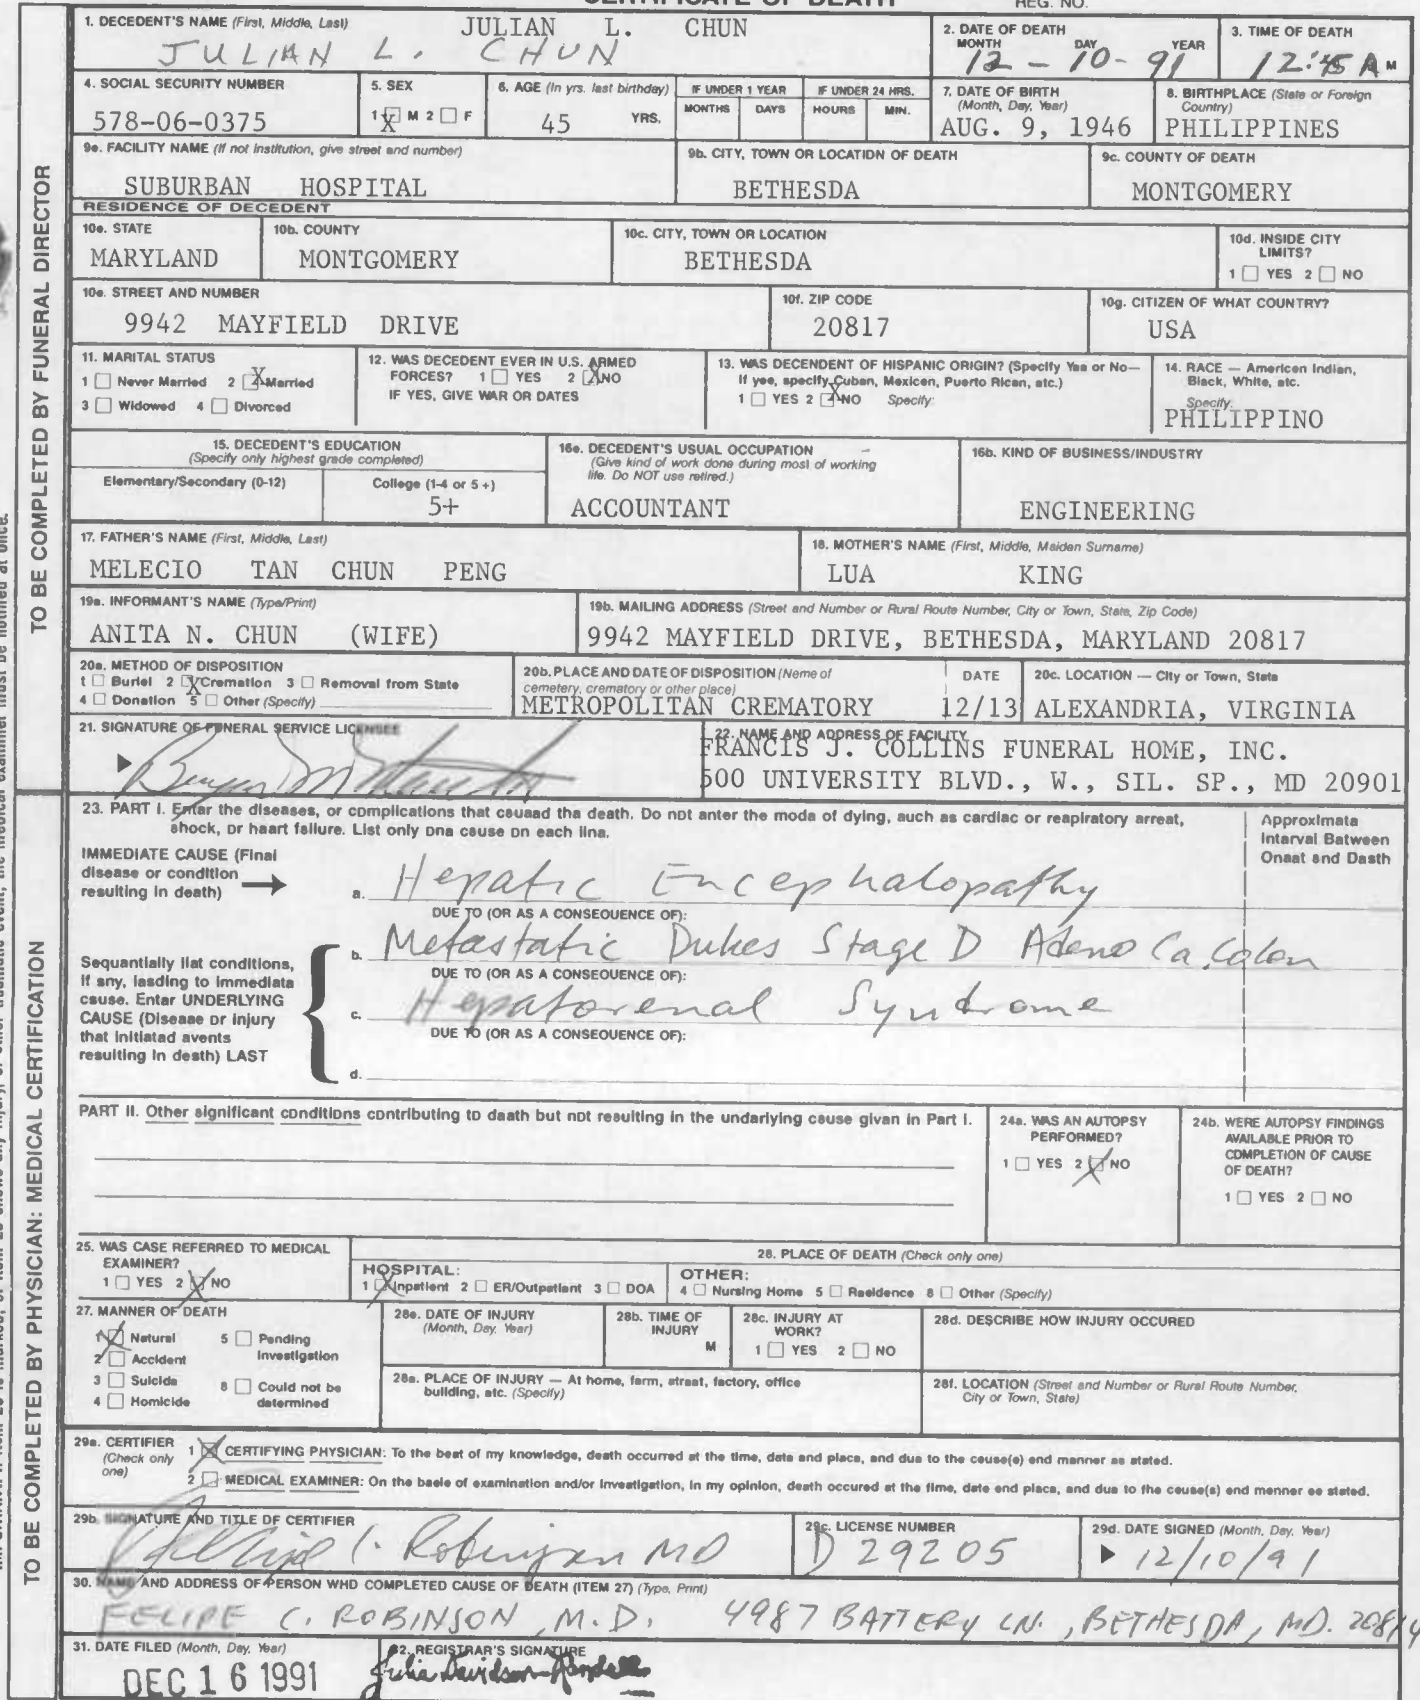 CERTIFICATE OF DEATH
REG. NO.
TO BE COMPLETED BY FUNERAL DIRECTOR
1. DECEDENT'S NAME (First, Middle, Last)
JULIAN L. CHUN
JULIAN L. CHUN
2. DATE OF DEATH
MONTH DAY YEAR
12-10-91
3. TIME OF DEATH
12:45 A M
4. SOCIAL SECURITY NUMBER
578-06-0375
5. SEX
1 X M 2 F
6. AGE (In yrs. last birthday)
45 YRS.
IF UNDER 1 YEAR
MONTHS DAYS
IF UNDER 24 HRS.
HOURS MIN.
7. DATE OF BIRTH
(Month, Day, Year)
AUG. 9, 1946
8. BIRTHPLACE (State or Foreign
Country)
PHILIPPINES
9a. FACILITY NAME (If not institution, give street and number)
SUBURBAN HOSPITAL
9b. CITY, TOWN OR LOCATION OF DEATH
BETHESDA
9c. COUNTY OF DEATH
MONTGOMERY
RESIDENCE OF DECEDENT
10a. STATE
MARYLAND
10b. COUNTY
MONTGOMERY
10c. CITY, TOWN OR LOCATION
BETHESDA
10d. INSIDE CITY
LIMITS?
1 YES 2 NO
10e. STREET AND NUMBER
9942 MAYFIELD DRIVE
10f. ZIP CODE
20817
10g. CITIZEN OF WHAT COUNTRY?
USA
11. MARITAL STATUS
1 Never Married 2 X Married
3 Widowed 4 Divorced
12. WAS DECEDENT EVER IN U.S. ARMED
FORCES? 1 YES 2 X NO
IF YES, GIVE WAR OR DATES
13. WAS DECENDENT OF HISPANIC ORIGIN? (Specify Yes or No—
If yes, specify Cuban, Mexican, Puerto Rican, etc.)
1 YES 2 X NO Specify:
14. RACE — American Indian,
Black, White, etc.
Specify:
PHILIPPINO
15. DECEDENT'S EDUCATION
(Specify only highest grade completed)
Elementary/Secondary (0-12)
College (1-4 or 5+)
5+
16a. DECEDENT'S USUAL OCCUPATION
(Give kind of work done during most of working
life. Do NOT use retired.)
ACCOUNTANT
16b. KIND OF BUSINESS/INDUSTRY
ENGINEERING
17. FATHER'S NAME (First, Middle, Last)
MELECIO TAN CHUN PENG
18. MOTHER'S NAME (First, Middle, Maiden Surname)
LUA KING
19a. INFORMANT'S NAME (Type/Print)
ANITA N. CHUN (WIFE)
19b. MAILING ADDRESS (Street and Number or Rural Route Number, City or Town, State, Zip Code)
9942 MAYFIELD DRIVE, BETHESDA, MARYLAND 20817
20a. METHOD OF DISPOSITION
1 Burial 2 X Cremation 3 Removal from State
4 Donation 5 Other (Specify)
20b. PLACE AND DATE OF DISPOSITION (Name of
cemetery, crematory or other place)
METROPOLITAN CREMATORY
DATE
12/13
20c. LOCATION — City or Town, State
ALEXANDRIA, VIRGINIA
21. SIGNATURE OF FUNERAL SERVICE LICENSEE
22. NAME AND ADDRESS OF FACILITY
FRANCIS J. COLLINS FUNERAL HOME, INC.
500 UNIVERSITY BLVD., W., SIL. SP., MD 20901
TO BE COMPLETED BY PHYSICIAN: MEDICAL CERTIFICATION
23. PART I. Enter the diseases, or complications that caused the death. Do not enter the mode of dying, such as cardiac or respiratory arrest,
shock, or heart failure. List only one cause on each line.
Approximate
Interval Between
Onset and Death
IMMEDIATE CAUSE (Final
disease or condition
resulting in death)
a. Hepatic Encephalopathy
DUE TO (OR AS A CONSEQUENCE OF):
b. Metastatic Dukes Stage D Adeno Ca, Colon
DUE TO (OR AS A CONSEQUENCE OF):
c. Hepatorenal Syndrome
DUE TO (OR AS A CONSEQUENCE OF):
d.
Sequentially list conditions,
if any, leading to immediate
cause. Enter UNDERLYING
CAUSE (Disease or injury
that initiated events
resulting in death) LAST
PART II. Other significant conditions contributing to death but not resulting in the underlying cause given in Part I.
24a. WAS AN AUTOPSY
PERFORMED?
1 YES 2 X NO
24b. WERE AUTOPSY FINDINGS
AVAILABLE PRIOR TO
COMPLETION OF CAUSE
OF DEATH?
1 YES 2 NO
25. WAS CASE REFERRED TO MEDICAL
EXAMINER?
1 YES 2 X NO
26. PLACE OF DEATH (Check only one)
HOSPITAL:
1 X Inpatient 2 ER/Outpatient 3 DOA
OTHER:
4 Nursing Home 5 Residence 6 Other (Specify)
27. MANNER OF DEATH
1 X Natural 5 Pending
Investigation
2 Accident
3 Suicide 6 Could not be
determined
4 Homicide
28a. DATE OF INJURY
(Month, Day, Year)
28b. TIME OF
INJURY
M
28c. INJURY AT
WORK?
1 YES 2 NO
28d. DESCRIBE HOW INJURY OCCURED
28e. PLACE OF INJURY — At home, farm, street, factory, office
building, etc. (Specify)
28f. LOCATION (Street and Number or Rural Route Number,
City or Town, State)
29a. CERTIFIER
(Check only
one)
1 X CERTIFYING PHYSICIAN: To the best of my knowledge, death occurred at the time, date and place, and due to the cause(s) and manner as stated.
2 MEDICAL EXAMINER: On the basis of examination and/or investigation, in my opinion, death occured at the time, date and place, and due to the cause(s) and manner as stated.
29b. SIGNATURE AND TITLE OF CERTIFIER
Felipe C. Robinson MD
29c. LICENSE NUMBER
D 29205
29d. DATE SIGNED (Month, Day, Year)
12/10/91
30. NAME AND ADDRESS OF PERSON WHO COMPLETED CAUSE OF DEATH (ITEM 27) (Type, Print)
FELIPE C. ROBINSON, M.D. 4987 BATTERY LN., BETHESDA, MD. 20814
31. DATE FILED (Month, Day, Year)
DEC 16 1991
32. REGISTRAR'S SIGNATURE
Julia Davidson-Randall